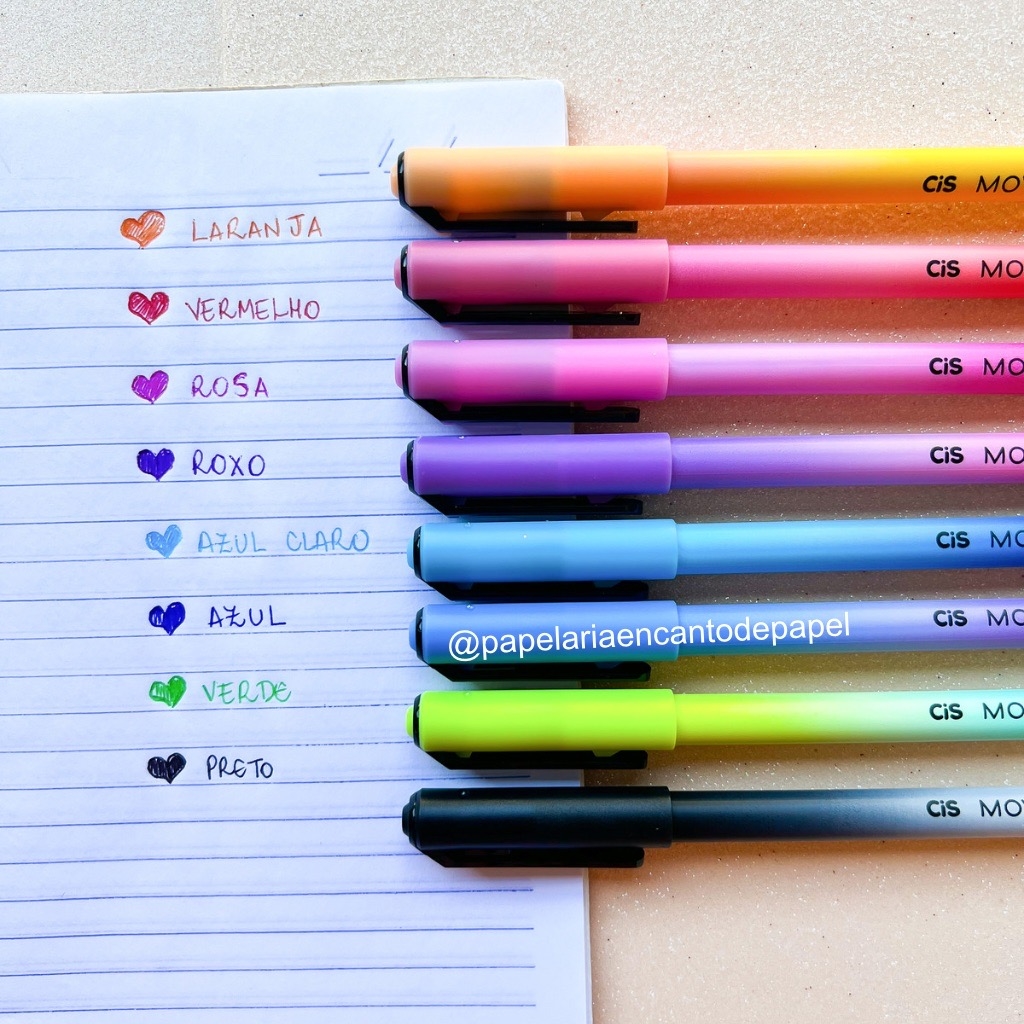 LARANJA
VERMELHO
ROSA
ROXO
AZUL CLARO
AZUL
VERDE
PRETO
CiS MOV
CiS MO
CiS MO
CiS MO
CiS MO
CiS MO
@papelariaencantodepapel
CiS MO
CiS MOV